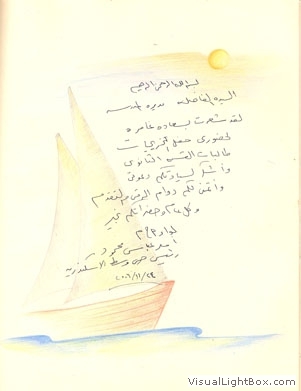 بسم الله الرحمن الرحيم
السيدة الفاضلة مديرة المدرسة
لقد شعرت بسعادة غامرة
لحضوري حفل تخريج
طالبات القسم الثانوي
وأشكر لسيادتكم دعوتي
وأتمنى لكم دوام الرقي والتقدم
وكل عام وحضراتكم بخير
لواء
محمود
رئيس حي وسط الاسكندرية
VisualLightBox.com